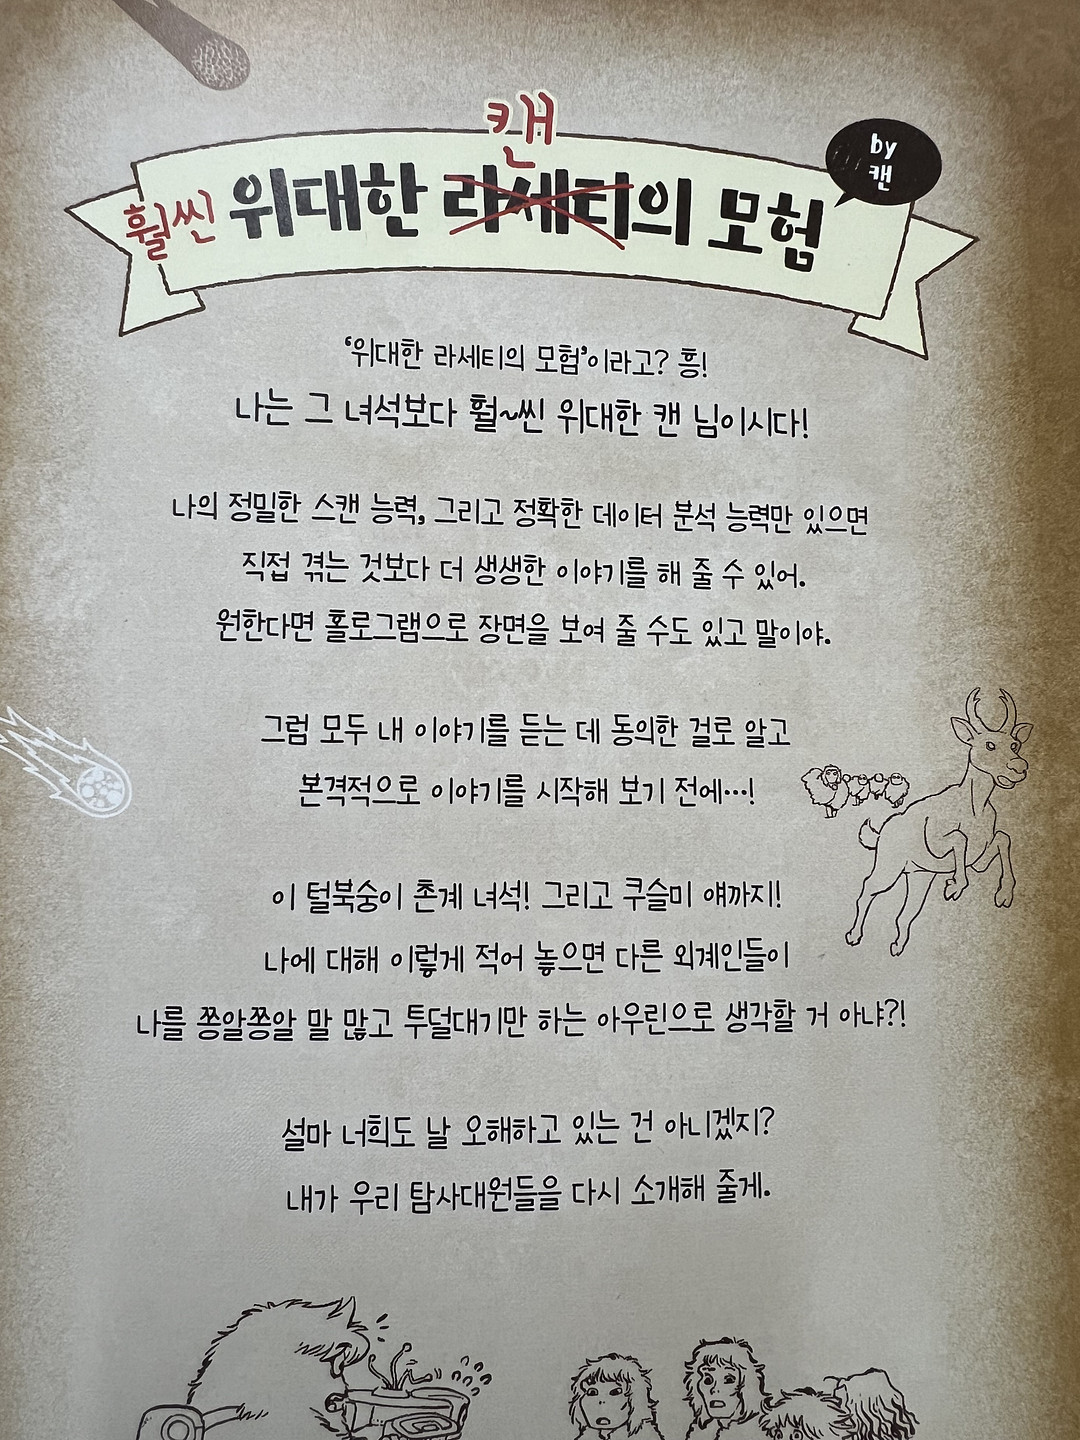 캔
훨씬 위대한 라세티의 모험
by
캔
‘위대한 라세티의 모험’이라고? 흥!
나는 그 녀석보다 훨~씬 위대한 캔 님이시다!
나의 정밀한 스캔 능력, 그리고 정확한 데이터 분석 능력만 있으면
직접 겪는 것보다 더 생생한 이야기를 해 줄 수 있어.
원한다면 홀로그램으로 장면을 보여 줄 수도 있고 말이야.
그럼 모두 내 이야기를 듣는 데 동의한 걸로 알고
본격적으로 이야기를 시작해 보기 전에…!
이 털북숭이 촌계 녀석! 그리고 쿠슬미 얘까지!
나에 대해 이렇게 적어 놓으면 다른 외계인들이
나를 쫑알쫑알 말 많고 투덜대기만 하는 아우린으로 생각할 거 아냐?!
설마 너희도 날 오해하고 있는 건 아니겠지?
내가 우리 탐사대원들을 다시 소개해 줄게.